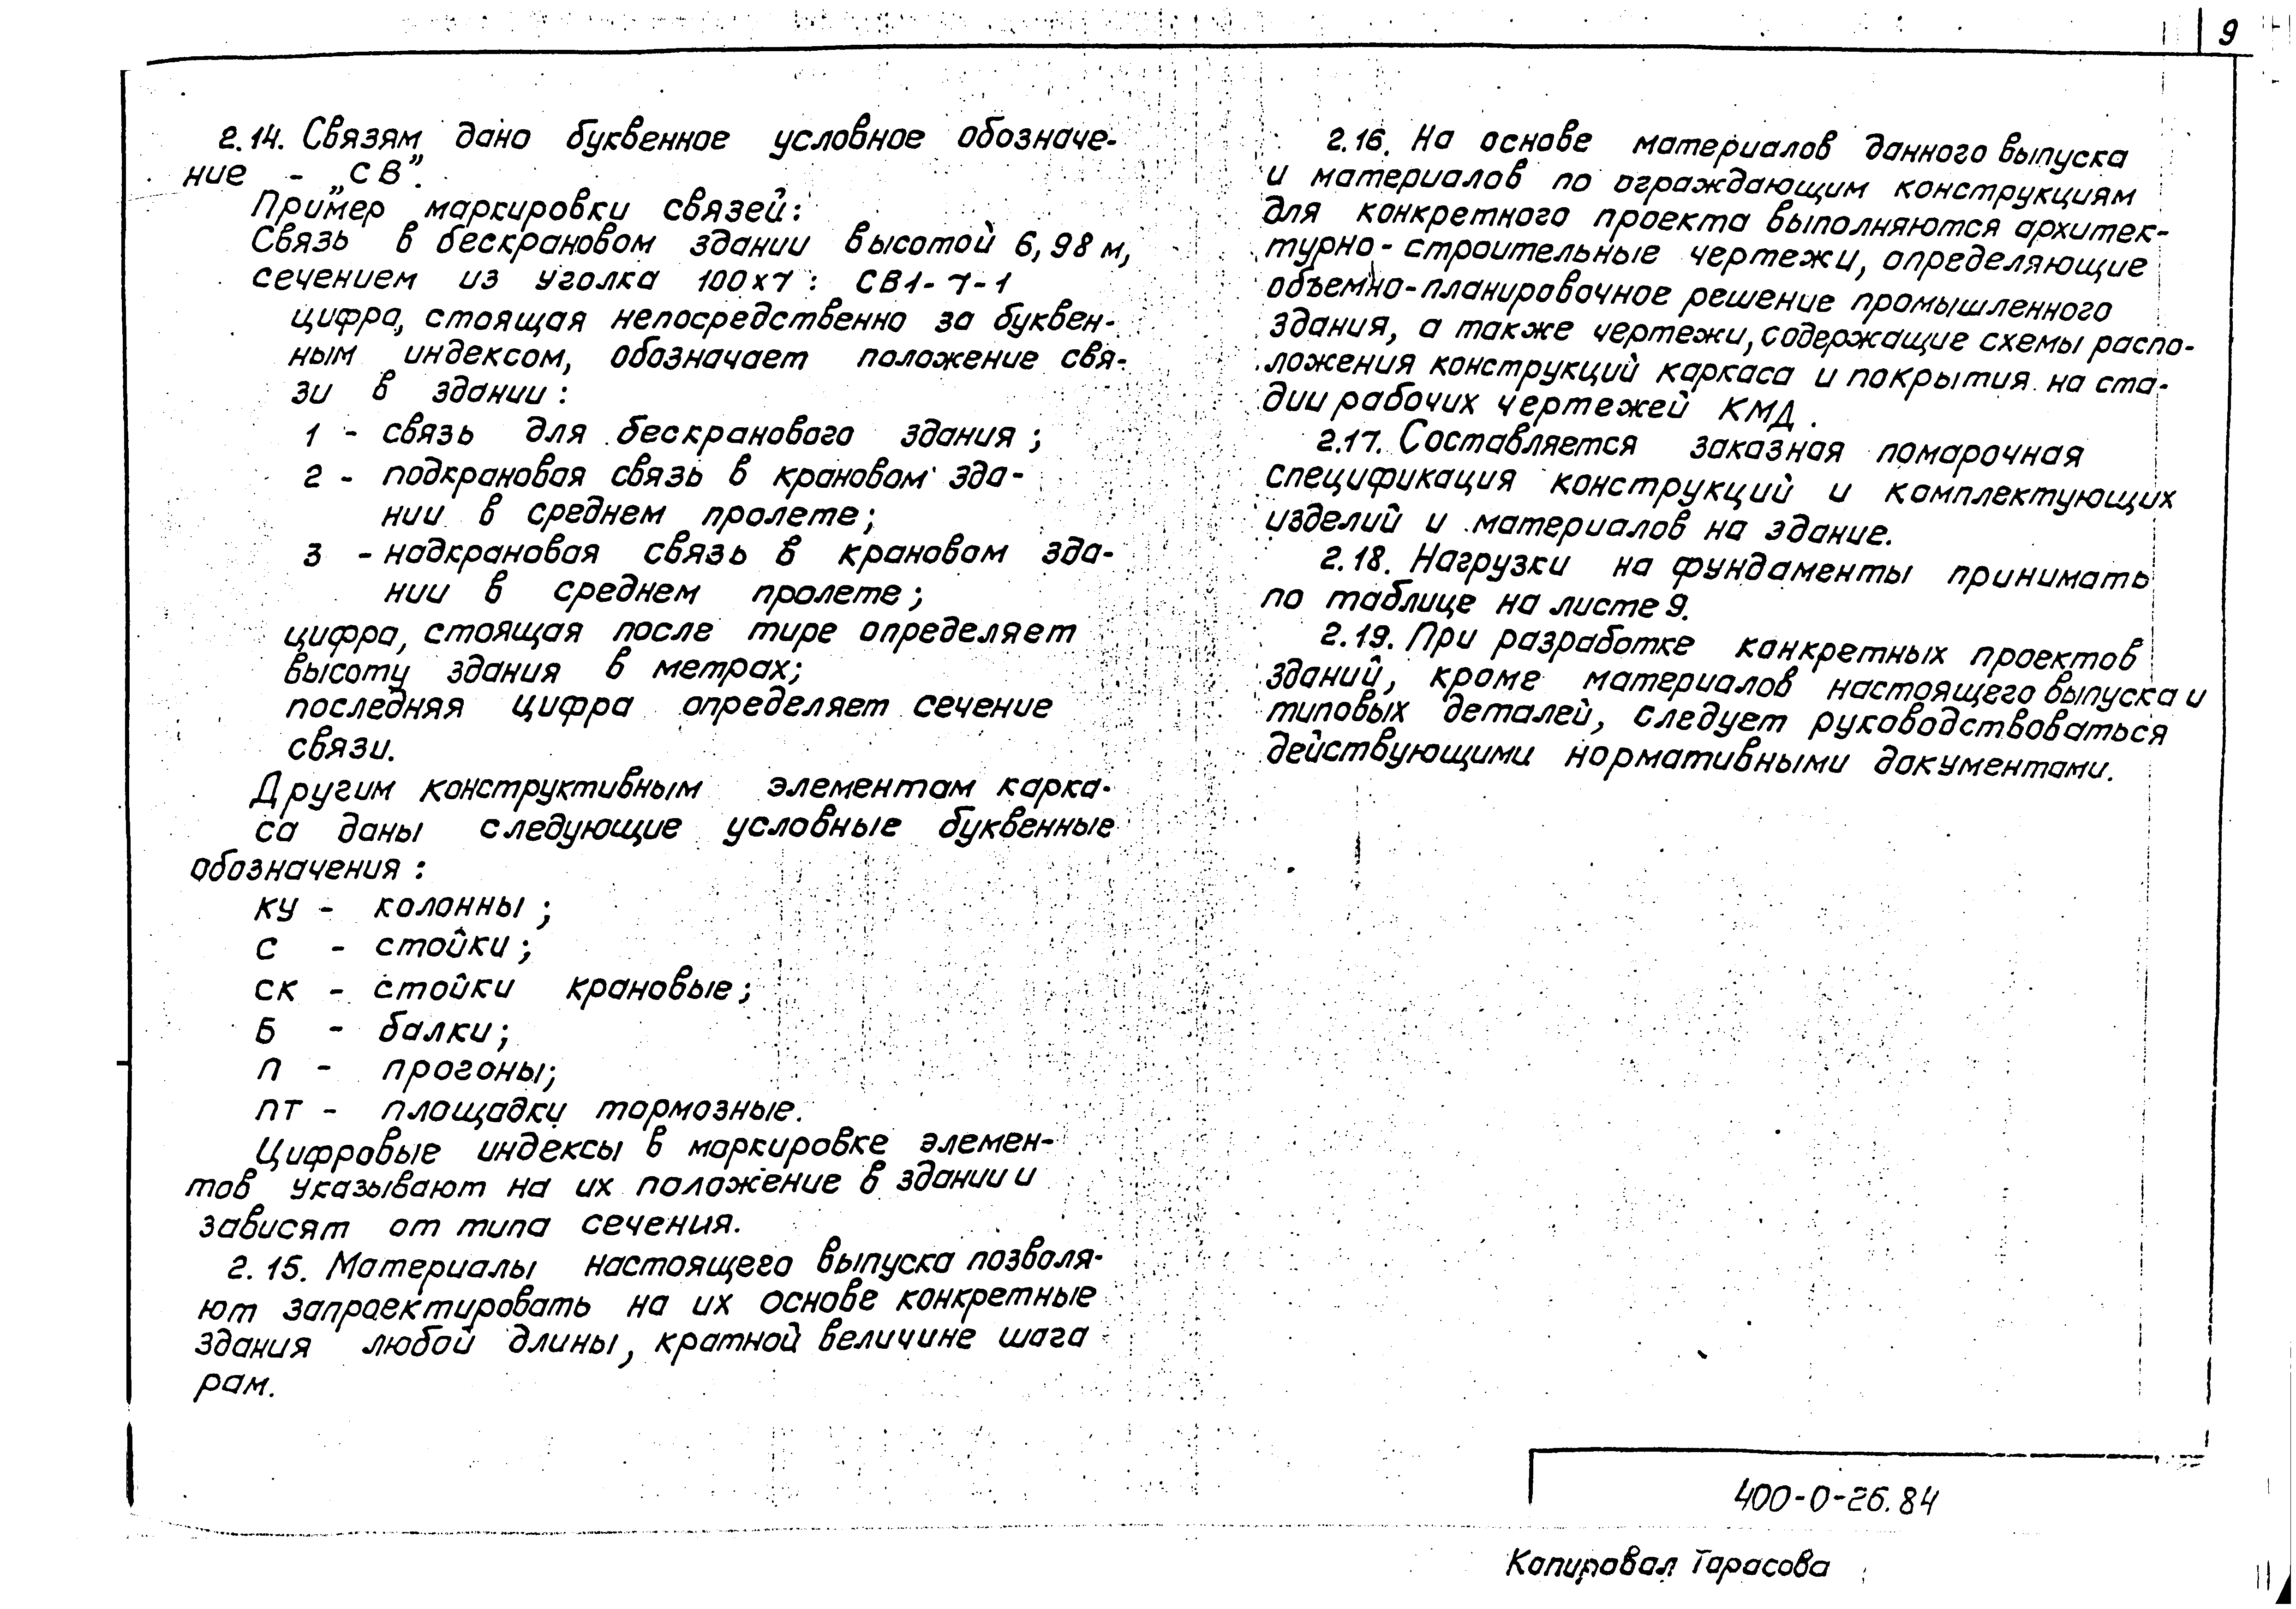 9
2.14. Связям дано буквенное условное обозначе-
ние - „СВ".
Пример маркировки связей:
Связь в бескрановом здании высотой 6,98 м,
сечением из уголка 100х7: СВ1-7-1
цифра, стоящая непосредственно за буквен-
ным индексом, обозначает положение свя-
зи в здании:
1 - связь для бескранового здания;
2 - подкрановая связь в крановом зда-
нии в среднем пролете;
3 - надкрановая связь в крановом зда-
нии в среднем пролете;
цифра, стоящая после тире определяет
высоту здания в метрах;
последняя цифра определяет сечение
связи.
Другим конструктивным элементам карка-
са даны следующие условные буквенные
обозначения:
КУ - колонны;
С - стойки;
СК - стойки крановые;
Б - балки;
П - прогоны;
ПТ - площадки тормозные.
Цифровые индексы в маркировке элемен-
тов указывают на их положение в здании и
зависят от типа сечения.
2.15. Материалы настоящего выпуска позволя-
ют запроектировать на их основе конкретные
здания любой длины, кратной величине шага
рам.
2.16. На основе материалов данного выпуска
и материалов по ограждающим конструкциям
для конкретного проекта выполняются архитек-
турно-строительные чертежи, определяющие
объемно-планировочное решение промышленного
здания, а также чертежи, содержащие схемы распо-
ложения конструкций каркаса и покрытия на ста-
дии рабочих чертежей КМД.
2.17. Составляется заказная помарочная
спецификация конструкций и комплектующих
изделий и материалов на здание.
2.18. Нагрузки на фундаменты принимать
по таблице на листе 9.
2.19. При разработке конкретных проектов
зданий, кроме материалов настоящего выпуска и
типовых деталей, следует руководствоваться
действующими нормативными документами.
400-0-26.84
Копировал Тарасова